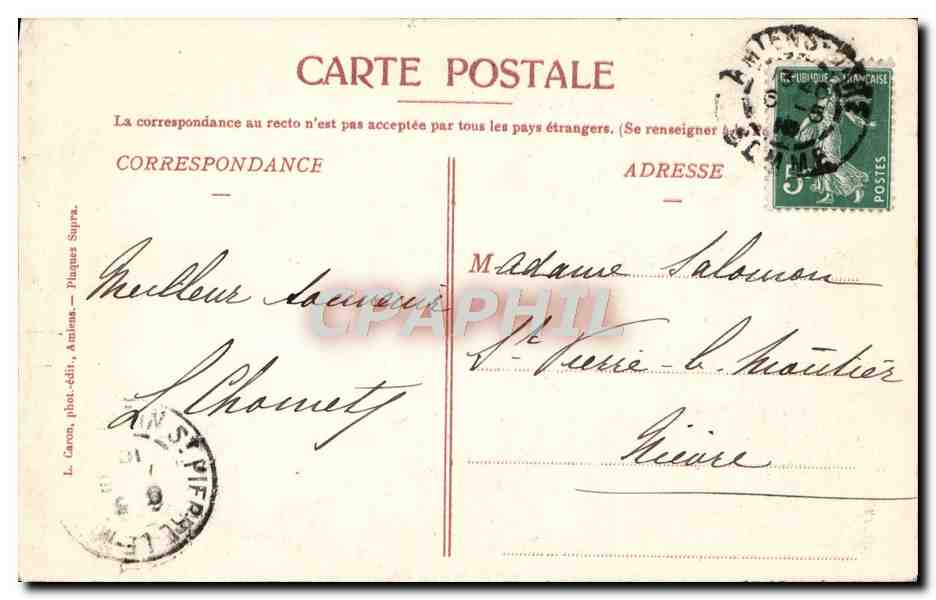 CARTE POSTALE
La correspondance au recto n'est pas acceptée par tous les pays étrangers. (Se renseigner
CORRESPONDANCE
ADRESSE
REPUBLIQUE FRANÇAISE
5
POSTES
AMIENS
SOMME
Madame Salomon
St Pierre-le-Moûtier
Nièvre
Meilleur souvenir
L Chomet
ST PIERRE-LE-M
L. Caron, phot.-édit., Amiens. — Plaques Supra.
CPAPHIL